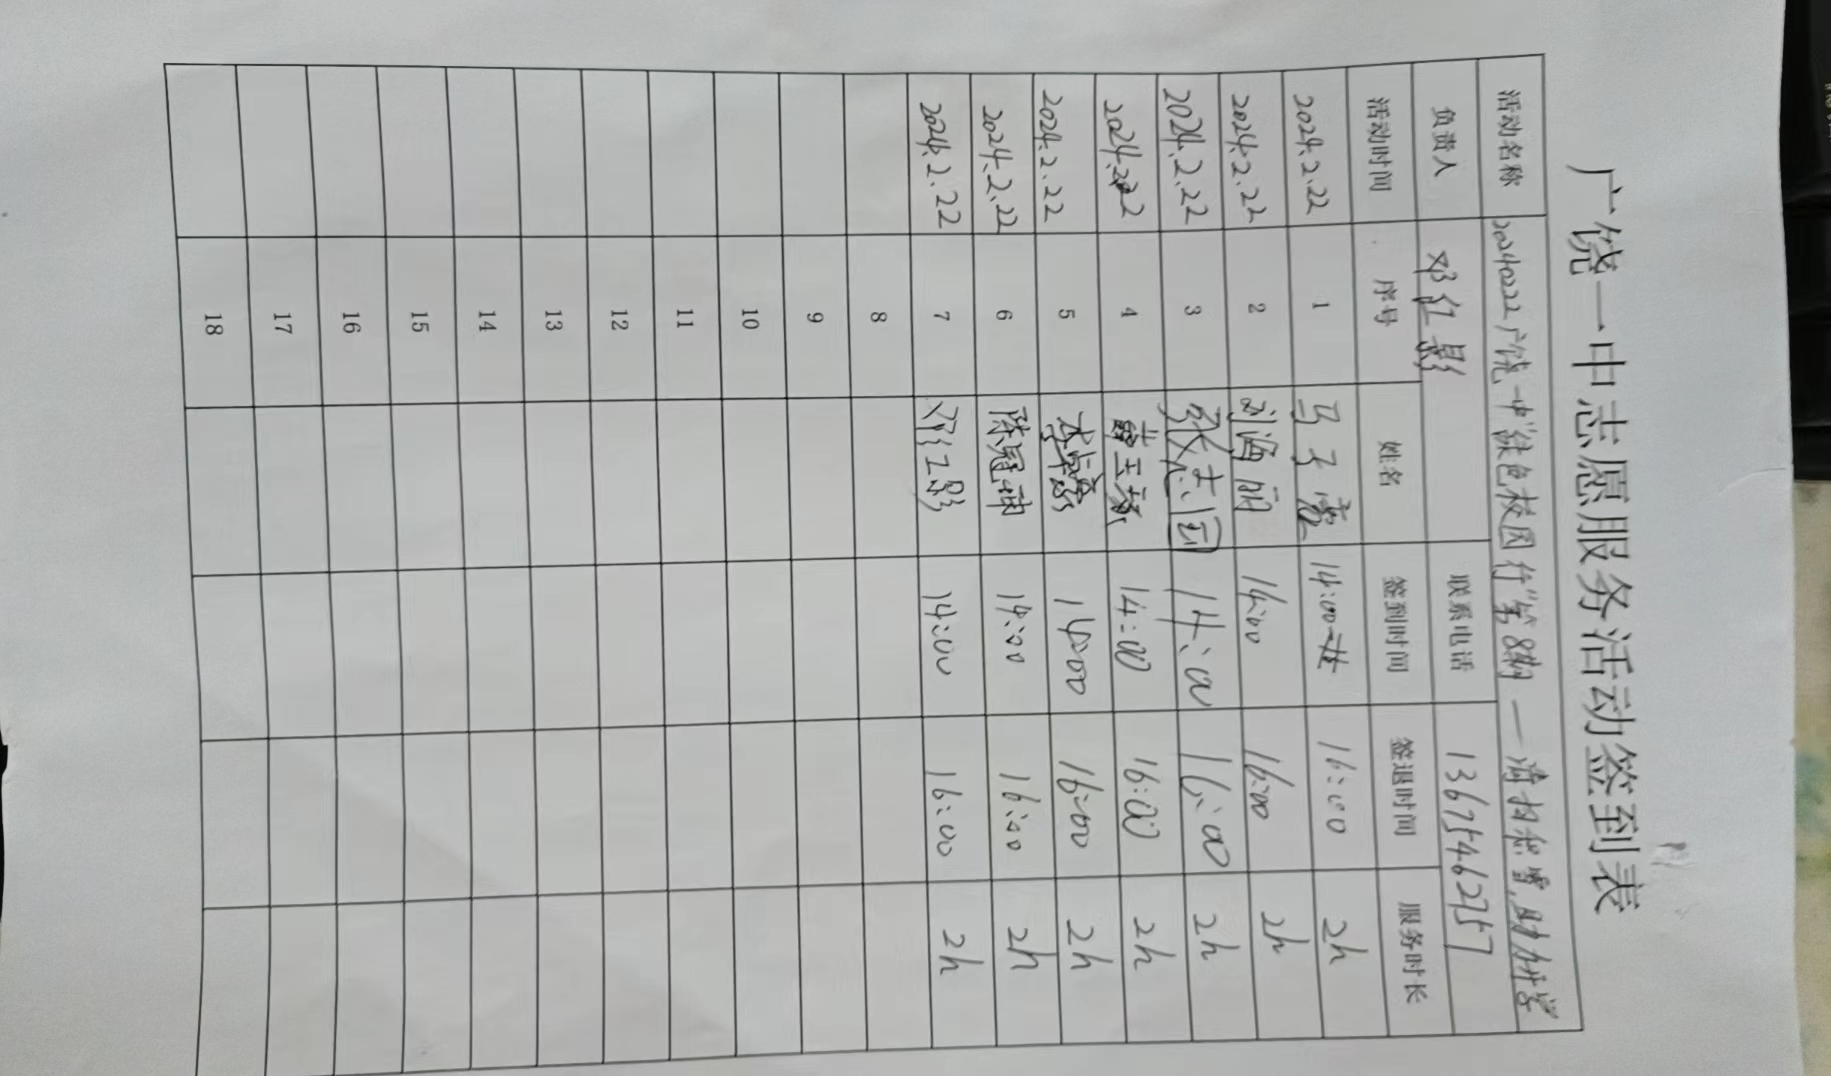 广饶一中志愿服务活动签到表
活动名称 20240222广饶一中"绿色校园行"第8期——清扫积雪,助力开学
负责人 邓红影 联系电话 13675462757
活动时间 序号 姓名 签到时间 签退时间 服务时长
2024.2.22 1 马子 14:00 16:00 2h
2024.2.22 2 刘海 14:00 16:00 2h
2024.2.22 3 志国 14:00 16:00 2h
2024.2.22 4 14:00 16:00 2h
2024.2.22 5 李 14:00 16:00 2h
2024.2.22 6 陈冠坤 14:00 16:00 2h
2024.2.22 7 邓红影 14:00 16:00 2h
8
9
10
11
12
13
14
15
16
17
18